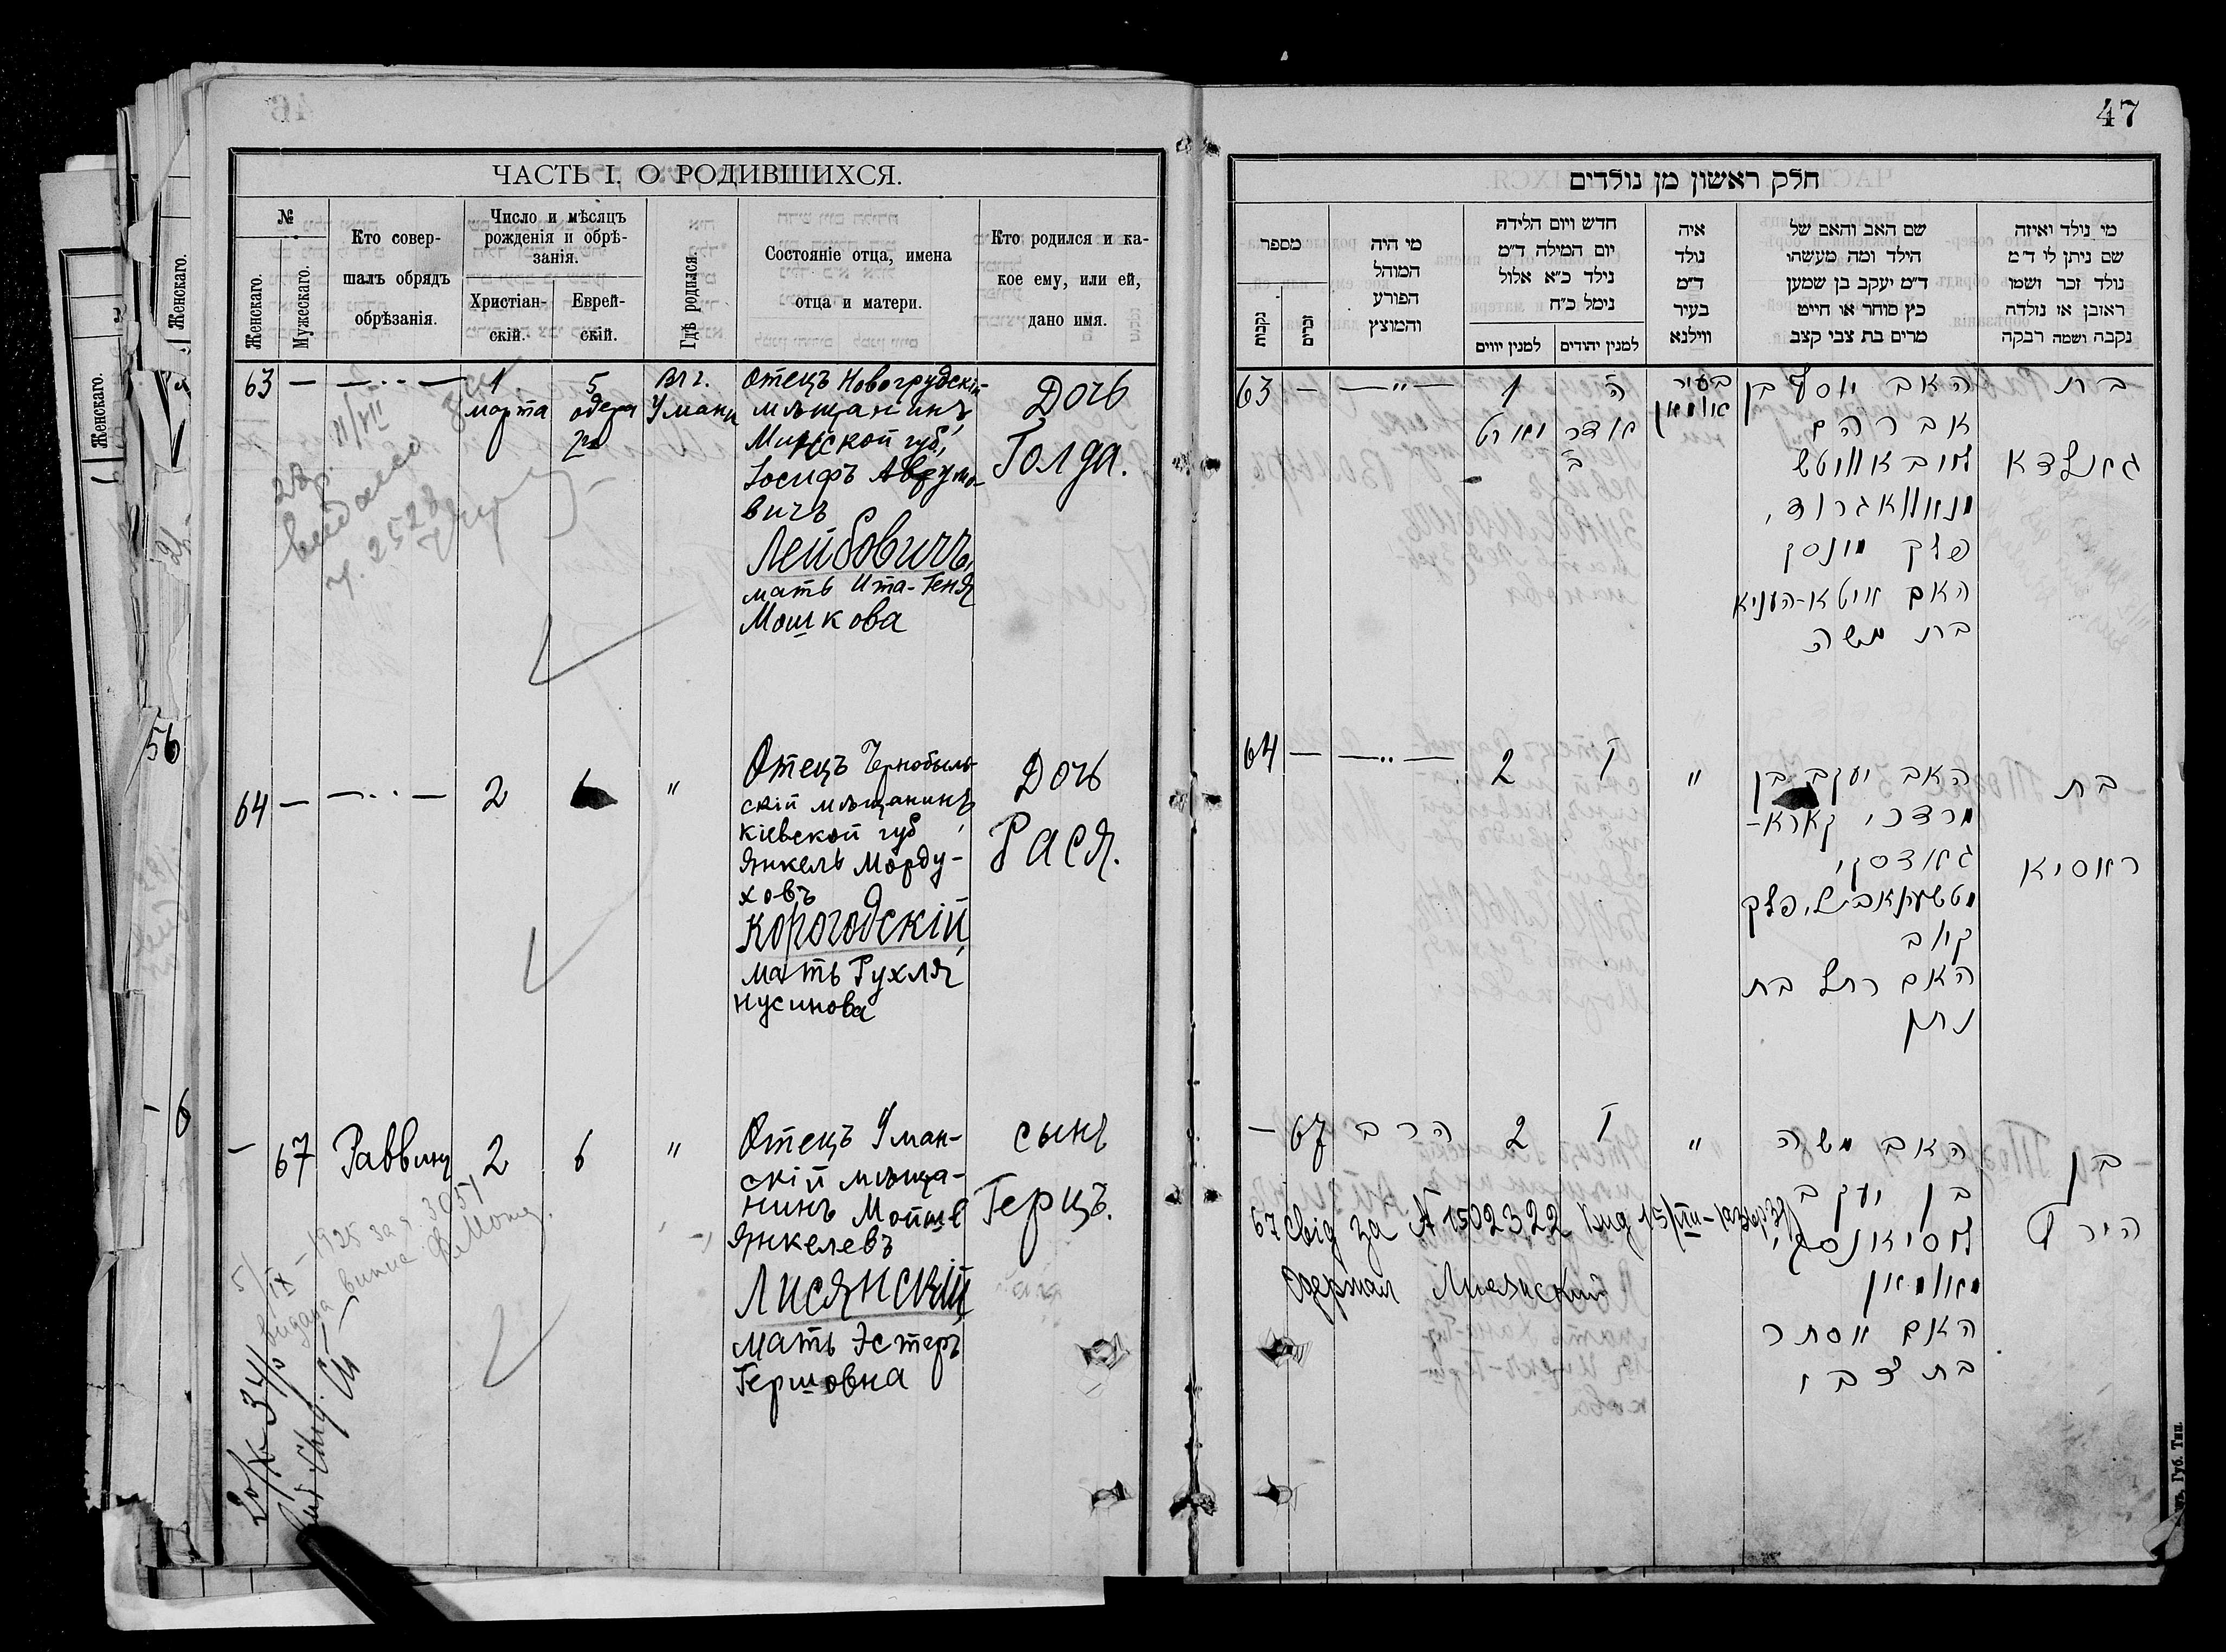 47
ЧАСТЬ I. О РОДИВШИХСЯ.
№
Женскаго.
Мужескаго.
Кто совер-
шалъ обрядъ
обрѣзанія.
Число и мѣсяцъ
рожденія и обрѣ-
занія.
Христіан-
скій.
Еврей-
скій.
Гдѣ родился.
Состояніе отца, имена
отца и матери.
Кто родился и ка-
кое ему, или ей,
дано имя.
63 — — .. — 1 марта 5 одера 2го
Вг г. Умани
Отецъ Новогрудскій
мѣщанинъ
Минской губ,
Іосифъ Аврумо-
вичъ
Лейбовичъ,
мать Ита-Геня
Мошкова
Дочь
Голда.
64 — — .. — 2 6 "
Отецъ Чернобыль-
скій мѣщанинъ
Кіевской губ,
Янкель Морду-
ховъ
Корогодскій,
мать Рухля
Нусинова
Дочь
Рася.
— 67 Раввинъ 2 6 "
Отецъ Уман-
скій мѣща-
нинъ Мойше
Янкелевъ
Лисянскій
мать Эстеръ
Гершовна
сынъ
Герцъ.
חלק ראשון מן נולדים
מספר
נקבות
זכרים
מי היה
המוהל
הפורע
והמוצץ
חדש ויום הלידה
יום המילה ד״מ
נילד כ״א אלול
נימל כ״ח
למנין יווים
למנין יהודים
איה
נולד
ד״מ
בעיר
ווילנא
שם האב והאם של
הילד ומה מעשהו
ד״מ יעקב בן שמען
כץ סוחר או חייט
מרים בת צבי קצב
מי נולד ואיזה
שם ניתן לו ד״מ
נולד זכר ושמו
ראובן או נולדה
נקבה ושמה רבקה
63 — — " — 1 מארט
ה אדר ב
בעיר
אומאן
האב יוסף בן
אברהם
לייבאוויטש
מנאוואגרוד,
פלך מינסק
האם איטא-העניא
בת משה
ברת
גאלדא
64 — — .. — 2 ו "
האב יעקב בן
מרדכי קארא-
גאדסקי
מטשערנאביל, פלך
קיוב
האם רחל בת
נתן
בת
ראסיא
— 67 הרב 2 ו "
האב משה
בן יעקב
ליסיאנסקי
מאומאן
האם אסתר
בת צבי
בן
הירץ
67 Свід за № 1502322
Одержал Лисянский
Губ. Тип.
Женскаго.
Женскаго.
56
6